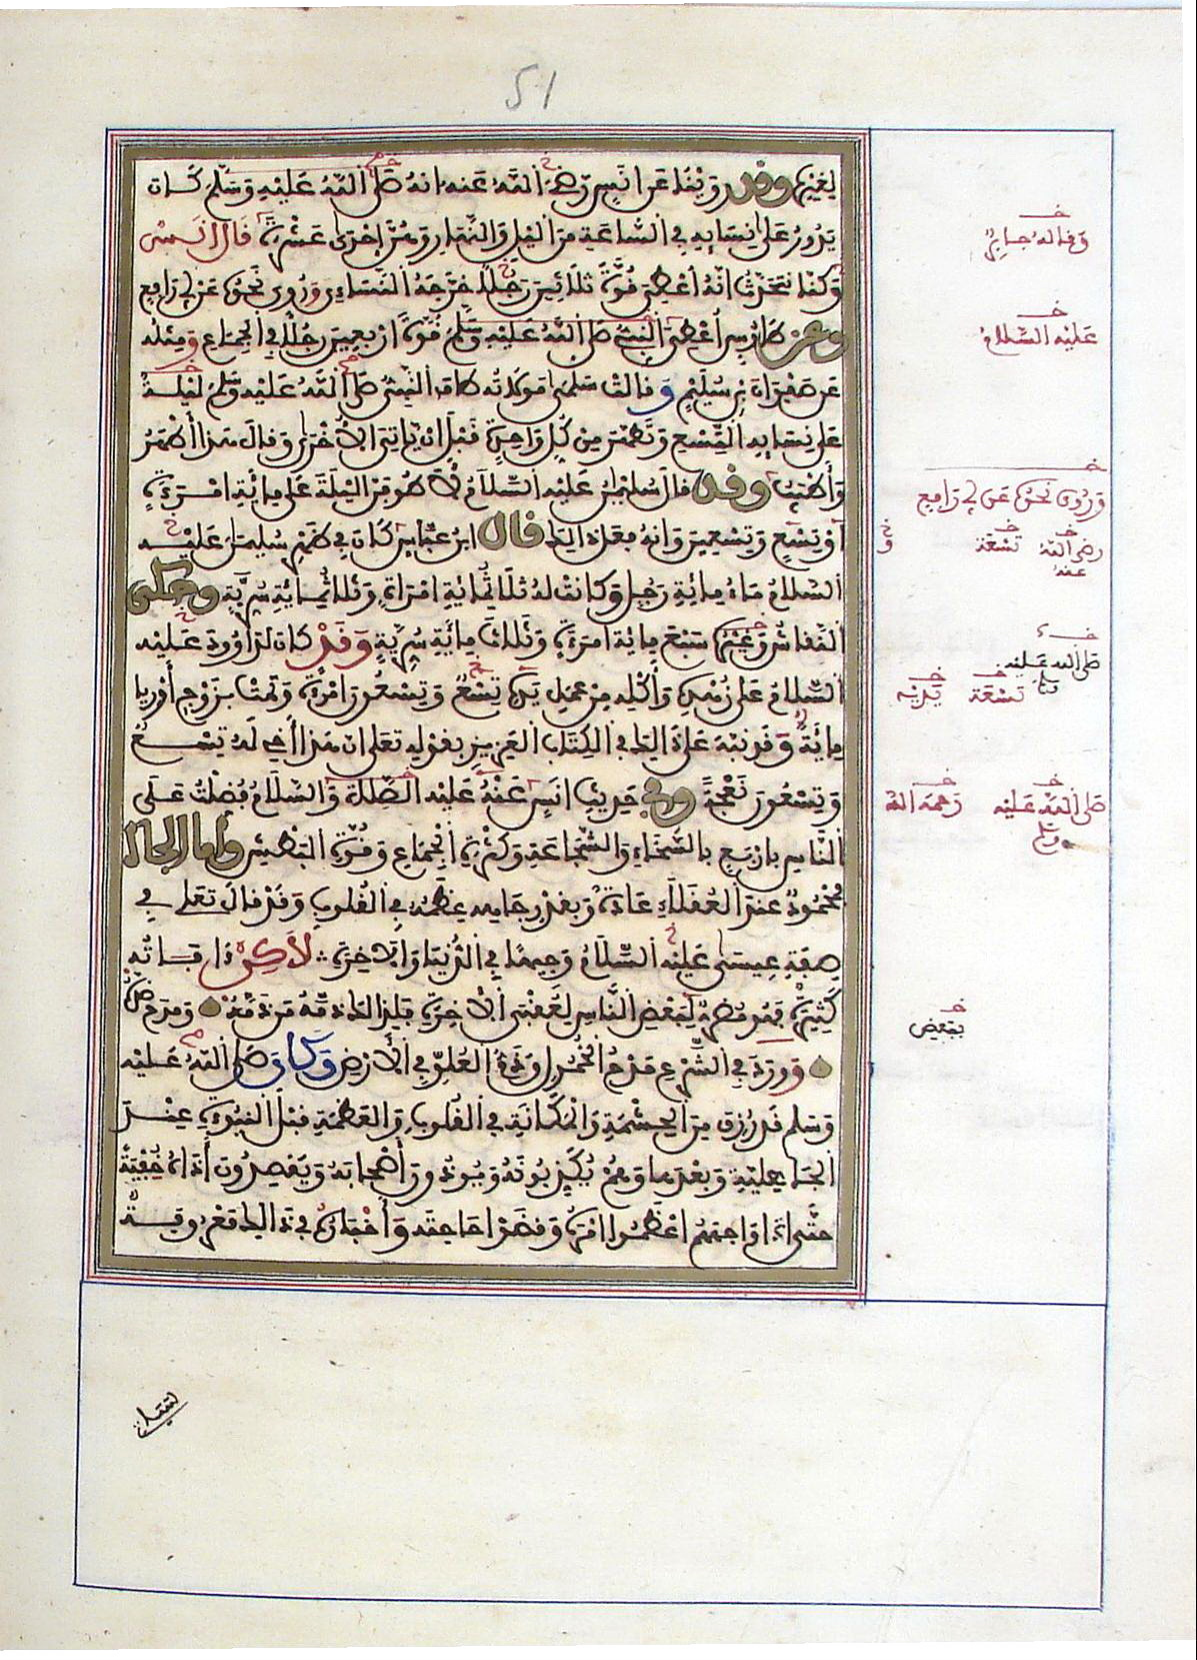 51
لغيره وقد روينا عن انس رضي الله عنه انه صلى الله عليه وسلم كان
يدور على نسايه في الساعة من الليل والنهار وهن إحدى عشرة قال انس
وكنا نتحدث انه أعطي قوة ثلاثين رجلا خرجه النساءي وروي نحوه عن ابي رافع
وعن طاوس أعطي النبي صلى الله عليه وسلم قوة اربعين رجلا في الجماع ومثله
عن صفوان بن سليم و قالت سلمى مولاته طاف النبي صلى الله عليه وسلم ليلة
على نسايه التسع وتطهر من كل واحدة قبل ان ياتي الاخرى وقال هذا أطهر
وأطيب وقد قال سليمن عليه السلام لأطوفن الليلة على مائة امرءة
أو تسع وتسعين وانه فعل ذلك قال ابن عباس كان في ظهر سليمن عليه
السلام ماء مائة رجل وكانت له ثلاثمائة امراة وثلاثمائة سرية وحكى
النقاش وغيره سبع مائة امرءة وثلاث مائة سرية وقد كان لداوود عليه
السلام على زهده وأكله من عمل يده تسع وتسعون امرءة وتمت بزوج أوريا
مائة وقد نبه على ذلك في الكتاب العزيز بقوله تعلى ان هذا أخي له تسع
وتسعون نعجة وفي حديث انس عنه عليه الصلاة والسلام فضلت على
الناس باربع بالسخاء والشجاعة وكثرة الجماع وقوة البطش وأما الجاه
فمحمود عند العقلاء عادة وبقدر جاهه عظمه في القلوب وقد قال تعلى في
صفة عيسى عليه السلام وجيها في الدنيا والاخرة لاكن ءافاته
كثيرة فهو مضر لبعض الناس لعقبى الاخرة فلذلك ذمه من ذمه ومدح ضده
وورد في الشرع مدح الخمول وذم العلو في الأرض وكان صلى الله عليه
وسلم قد رزق من الحشمة والمكانة في القلوب والعظمة قبل النبوءة عند
الجاهلية وبعدها وهم يكذبونه ويوذون أصحابه ويقصدون أذاه خفية
حتى اذا واجههم اعظموا امره وقضوا حاجته وأخباره في ذلك معروفة
خـ
وقاله جابر
خـ
عليه السلام
خـ
وروي نحوه عن ابي رافع
رضي الله عنه
خـ
تسعة
خـ
صلى الله عليه وسلم
خـ
تسعة
خـ
يديه
خـ
صلى الله عليه وسلم
خـ
رحمه الله
خـ
ببعض